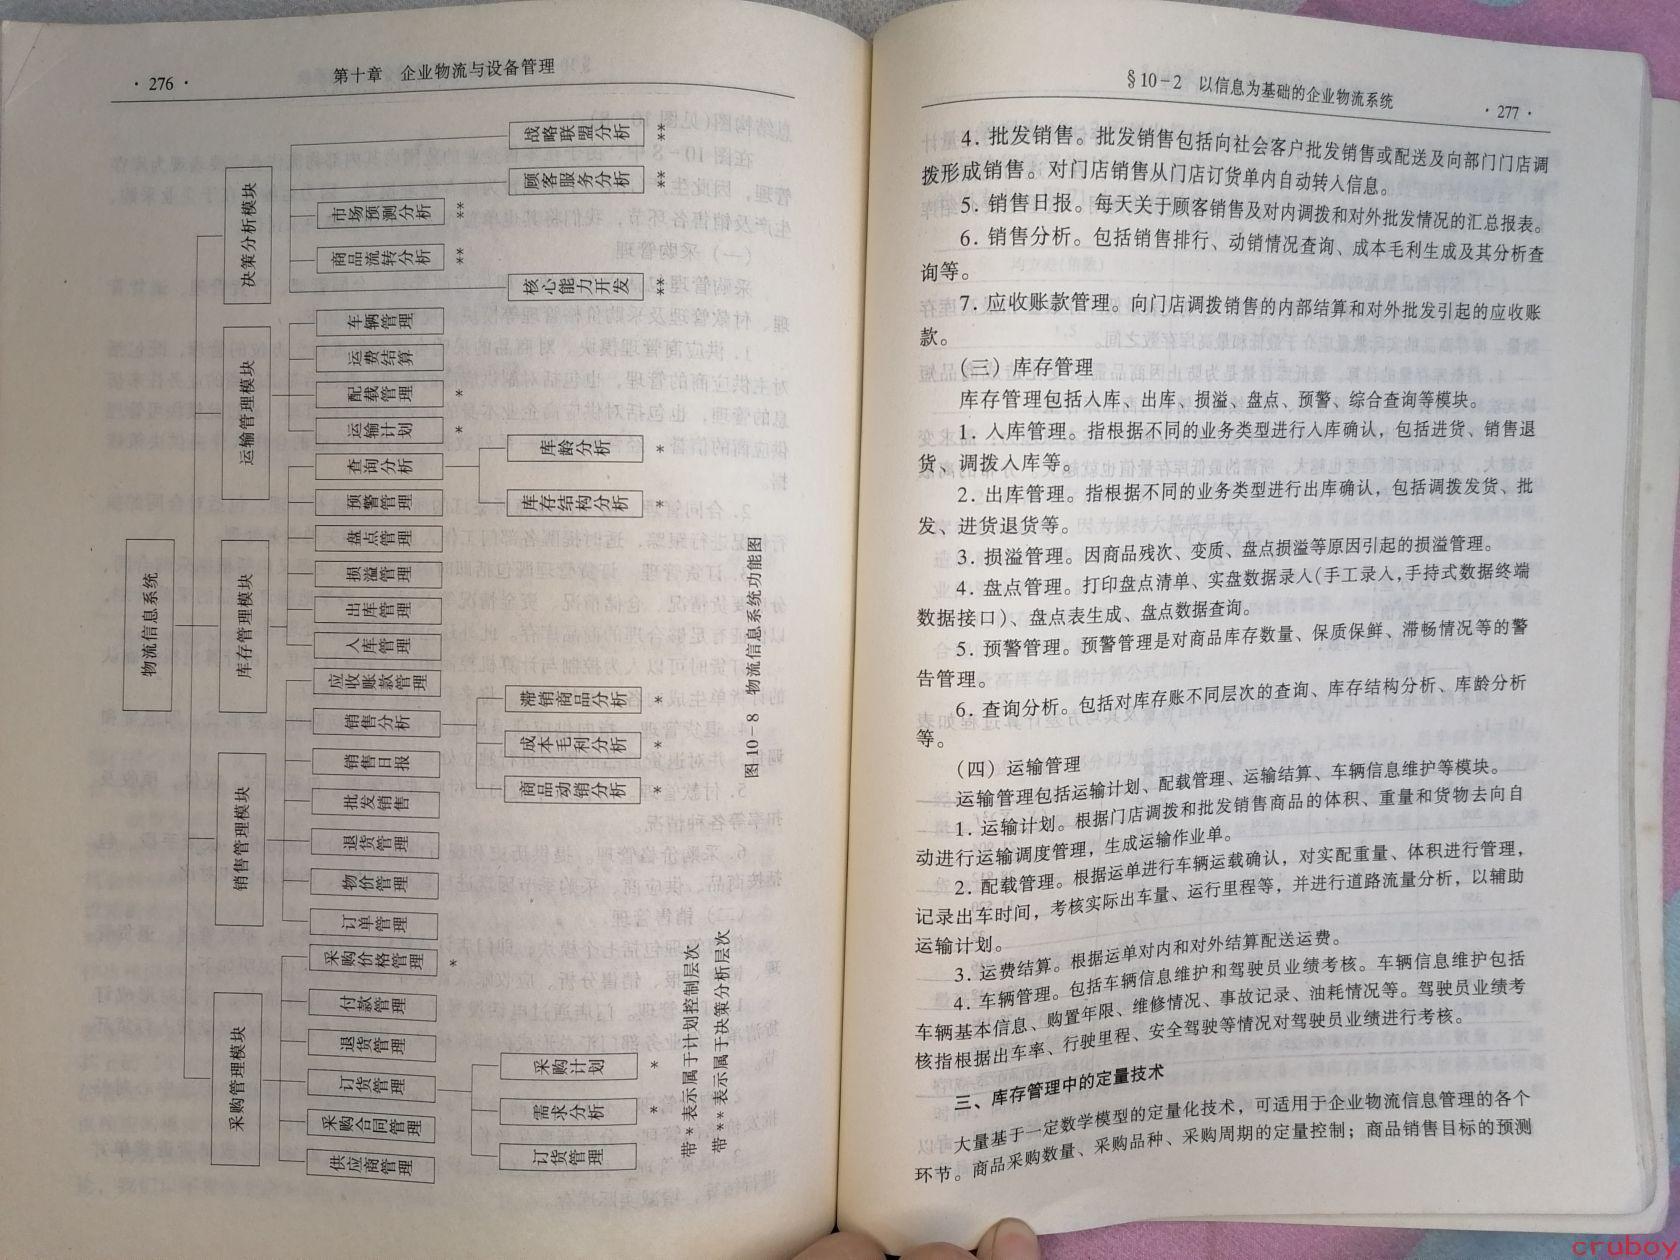 · 276 ·
第十章 企业物流与设备管理
物流信息系统
采购管理模块
销售管理模块
库存管理模块
运输管理模块
决策分析模块
供应商管理
采购合同管理
订货管理
退货管理
付款管理
采购价格管理
*
订单管理
物价管理
退货管理
批发销售
销售日报
销售分析
应收账款管理
入库管理
出库管理
损溢管理
盘点管理
预警管理
查询分析
运输计划
*
配载管理
*
运费结算
车辆管理
商品流转分析
**
市场预测分析
**
订货管理
需求分析
*
采购计划
*
商品动销分析
*
成本毛利分析
*
滞销商品分析
*
库存结构分析
*
库龄分析
*
核心能力开发
**
顾客服务分析
**
战略联盟分析
**
带*表示属于计划控制层次
带**表示属于决策分析层次
图 10－8 物流信息系统功能图
§10－2 以信息为基础的企业物流系统
· 277 ·
4. 批发销售。批发销售包括向社会客户批发销售或配送及向部门门店调
拨形成销售。对门店销售从门店订货单内自动转入信息。
5. 销售日报。每天关于顾客销售及对内调拨和对外批发情况的汇总报表。
6. 销售分析。包括销售排行、动销情况查询、成本毛利生成及其分析查
询等。
7. 应收账款管理。向门店调拨销售的内部结算和对外批发引起的应收账
款。
（三）库存管理
库存管理包括入库、出库、损溢、盘点、预警、综合查询等模块。
1. 入库管理。指根据不同的业务类型进行入库确认，包括进货、销售退
货、调拨入库等。
2. 出库管理。指根据不同的业务类型进行出库确认，包括调拨发货、批
发、进货退货等。
3. 损溢管理。因商品残次、变质、盘点损溢等原因引起的损溢管理。
4. 盘点管理。打印盘点清单、实盘数据录入(手工录入,手持式数据终端
数据接口)、盘点表生成、盘点数据查询。
5. 预警管理。预警管理是对商品库存数量、保质保鲜、滞畅情况等的警
告管理。
6. 查询分析。包括对库存账不同层次的查询、库存结构分析、库龄分析
等。
（四）运输管理
运输管理包括运输计划、配载管理、运输结算、车辆信息维护等模块。
1. 运输计划。根据门店调拨和批发销售商品的体积、重量和货物去向自
动进行运输调度管理，生成运输作业单。
2. 配载管理。根据运单进行车辆运载确认，对实配重量、体积进行管理，
记录出车时间，考核实际出车量、运行里程等，并进行道路流量分析，以辅助
运输计划。
3. 运费结算。根据运单对内和对外结算配送运费。
4. 车辆管理。包括车辆信息维护和驾驶员业绩考核。车辆信息维护包括
车辆基本信息、购置年限、维修情况、事故记录、油耗情况等。驾驶员业绩考
核指根据出车率、行驶里程、安全驾驶等情况对驾驶员业绩进行考核。
三、库存管理中的定量技术
大量基于一定数学模型的定量化技术，可适用于企业物流信息管理的各个
环节。商品采购数量、采购品种、采购周期的定量控制；商品销售目标的预测
cruboy